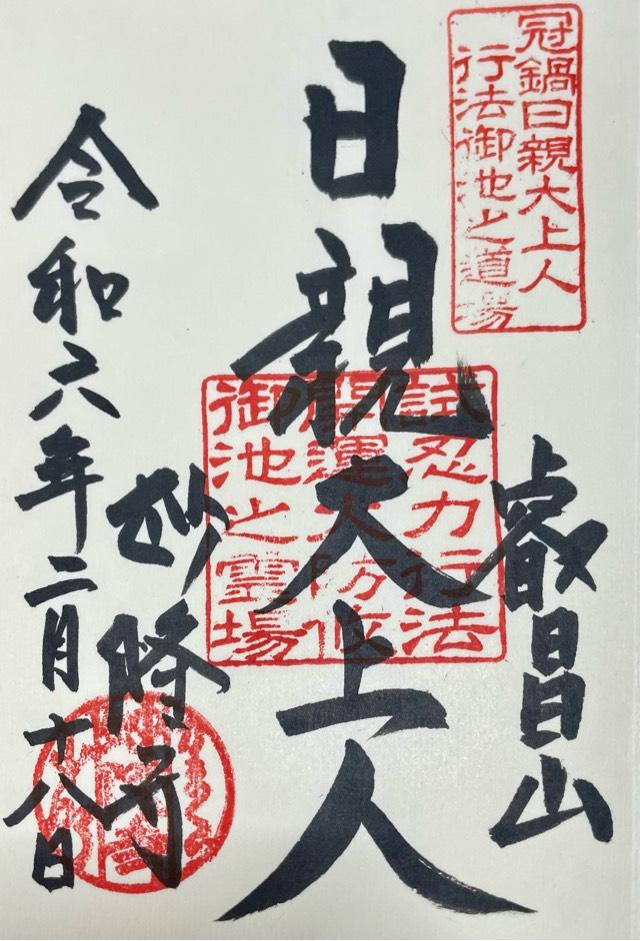 冠鍋日親大上人
行法御池之道場
叡昌山
日親大上人
試忍力行法
開運火防
御池之霊場
妙隆寺
令和六年二月十八日